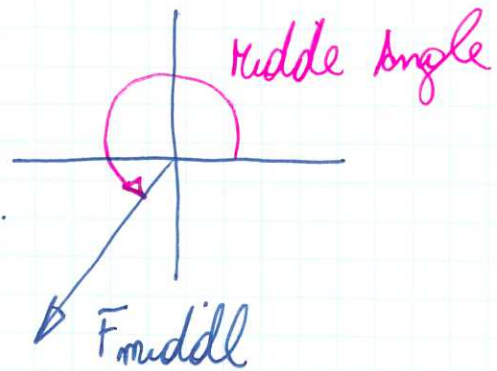 Midde Angle
Fmiddl